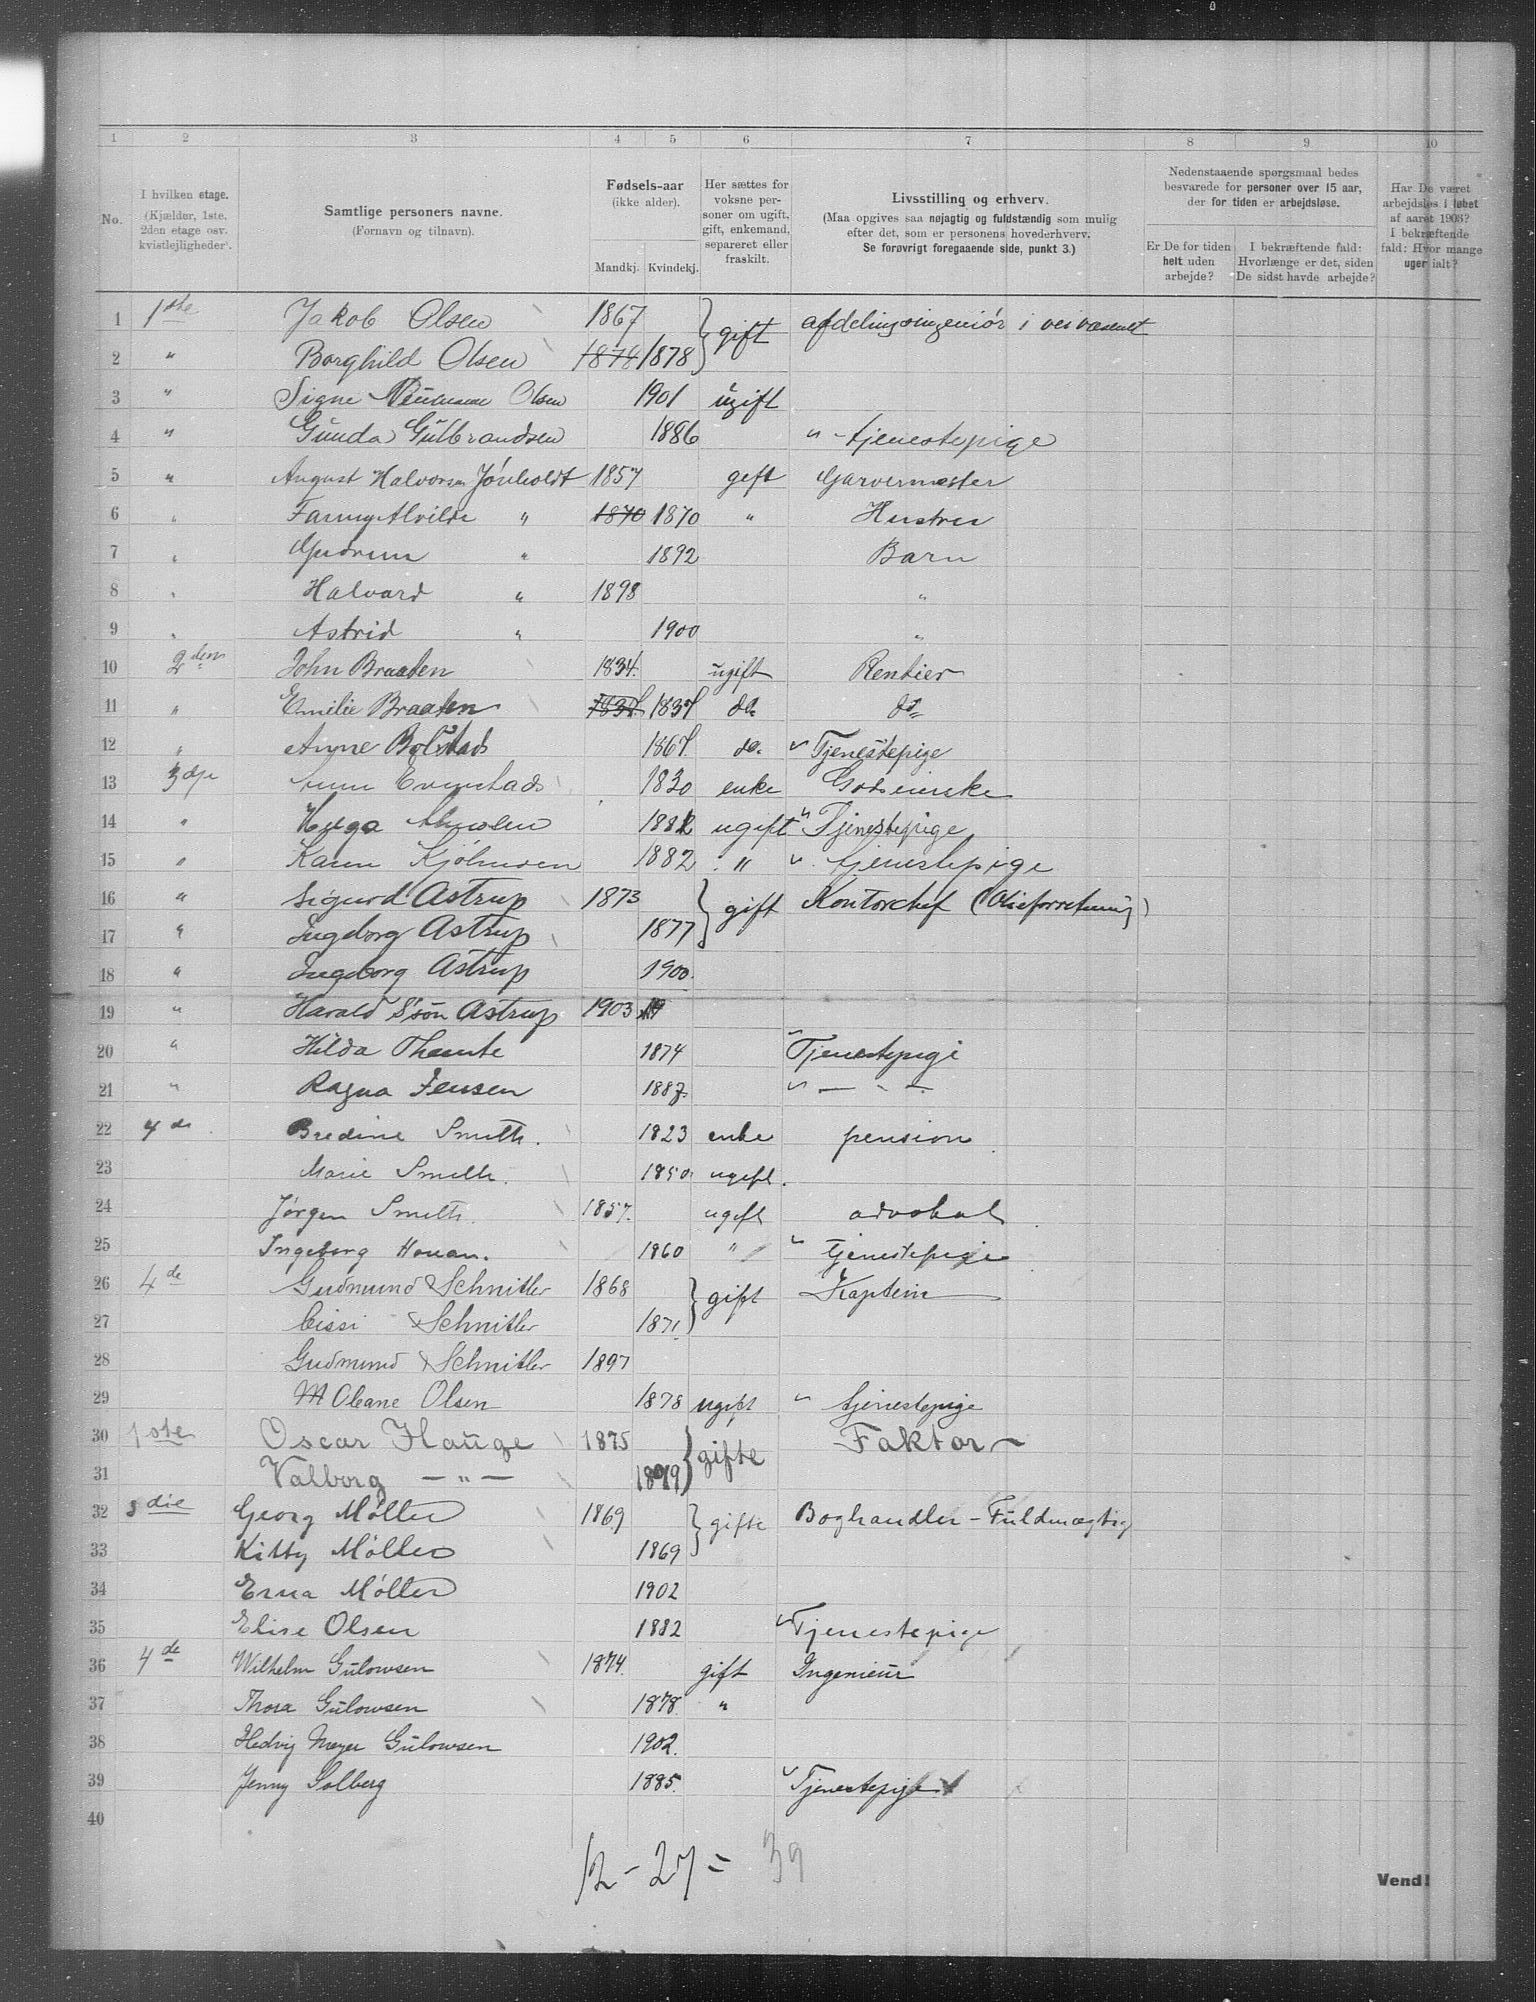 1 2 3 4 5 6 7 8 9 10
No.
I hvilken etage. (Kjælder, 1ste, 2den etage osv. kvistleiligheder).
Samtlige personers navne. (Fornavn og tilnavn).
Fødsels-aar (ikke alder).
Mandkj. Kvindekj.
Her sættes for voksne personer om ugift, gift, enkemand, separeret eller fraskilt.
Livsstilling og erhverv.
(Maa opgives saa nøjagtig og fuldstændig som mulig efter det, som er personens hovederhverv. Se forøvrigt foregaaende side, punkt 3.)
Nedenstaaende spørgsmaal bedes besvarede for personer over 15 aar, der for tiden er arbejdsløse.
Er De for tiden helt uden arbejde?
I bekræftende fald: Hvorlænge er det, siden De sidst havde arbejde?
Har De været arbejdsløs i løbet af aaret 1903? I bekræftende fald: Hvor mange uger ialt?
1 1ste Jakob Olsen 1867 } gift afdelingsingeniør i veivæsenet
2 " Borghild Olsen 1878 1878
3 " Signe Olsen 1901 ugift
4 " Gunda Gulbrandsen 1886 " tjenestepige
5 " August Halvorsen Jónholdt 1857 gift Garvermester
6 " Fanny Alvilde " 1870 1870 " Hustru
7 " Gudrun " 1892 Barn
8 " Halvard " 1898 "
9 " Astrid " 1900 "
10 2den John Braaten 1834. ugift Rentier
11 " Emilie Braaten 1837 1837 do. do
12 " Anne Bolstad 1867. do. Tjenestepige
13 3dje Evenstad 1830 enke Godseierske
14 " Helga 1882 ugift " Tjenestepige
15 " Karen Kjölnesen 1882 " " tjenestepige
16 " Sigurd Astrup 1873 } gift Kontorchef (Olieforretning)
17 " Ingeborg Astrup 1877
18 " Ingeborg Astrup 1900.
19 " Harald S'søn Astrup 1903
20 " Hilda Thomte 1874 Tjenestepige
21 " Ragna Jensen 1887. " — " —
22 4de Bredine Smith. 1823 enke pension
23 Marie Smith. 1850 ugift.
24 Jørgen Smith. 1857. ugift advokat
25 Ingeborg Houan. 1860 " " tjenestepige
26 4de Gudmund Schnitler 1868 } gift Kaptein
27 Cissi Schnitler 1871.
28 Gudmund Schnitler 1897
29 Oleane Olsen 1878 ugift " tjenestepige
30 1ste Oscar Hauge 1875 } gifte Faktor
31 Valborg — " — 1879
32 3die Georg Møller 1869 } gifte Boghandler-Fuldmægtig
33 Kitty Møller 1869
34 Erna Møller 1902
35 Elise Olsen 1882 Tjenestepige
36 4de Wilhelm Gulowsen 1874. gift Ingenieur
37 Thora Gulowsen 1878. "
38 Hedvig Meyer Gulowsen 1902.
39 Jenny Solberg 1885. Tjenestepige
40
12 - 27 = 39
Vend!